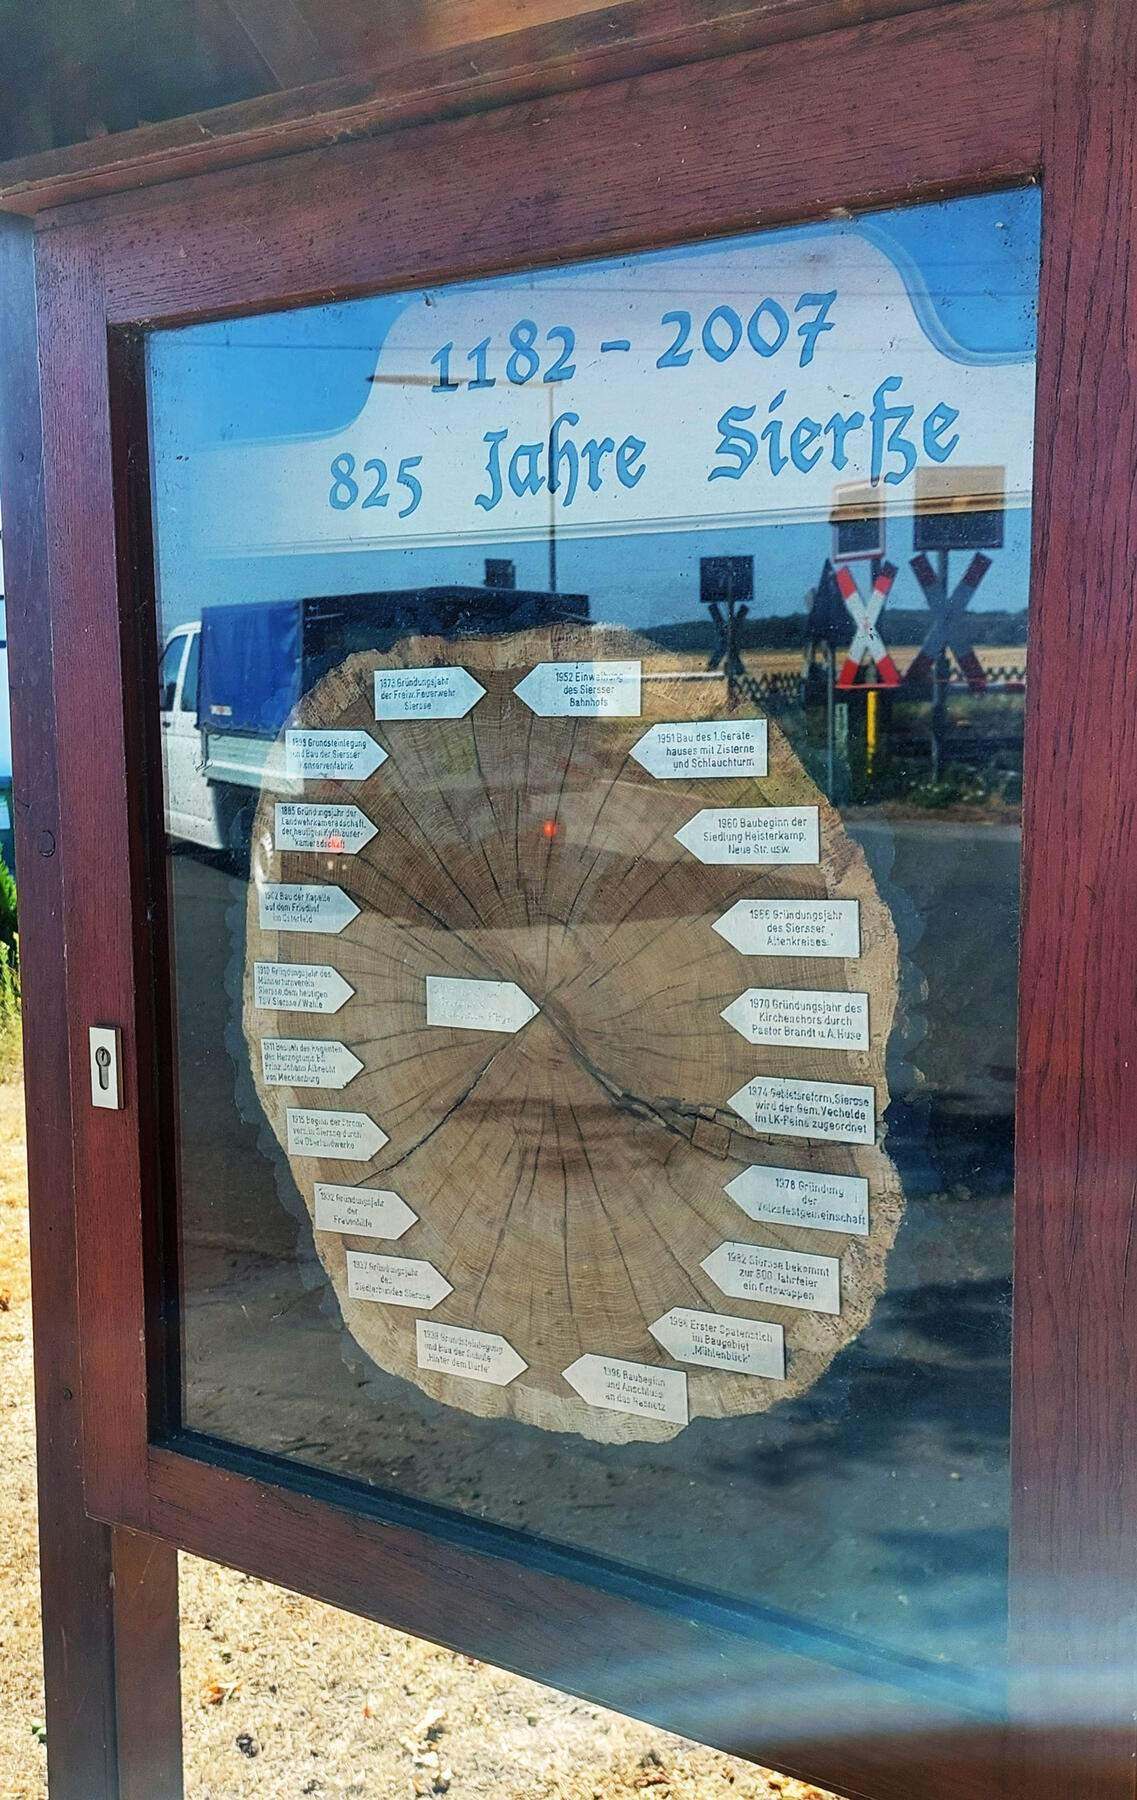 1182 - 2007
825 Jahre Sierße
1873 Gründungsjahr
der Freiw. Feuerwehr
Siersse
1899 Grundsteinlegung
und Bau der Siersser
Konservenfabrik
1885 Gründungsjahr der
Landwehrkameradschaft,
der heutigen Kyffhäuser-
kameradschaft
1902 Bau der Kapelle
auf dem Friedhof
im Osterfeld
1910 Gründungsjahr des
Männerturnverein
Siersse, dem heutigen
TSV Siersse / Wahle
1911 Besuch des Regenten
des Herzogtums
Prinz Johann Albrecht
von Mecklenburg
1915 Beginn der Strom-
vers. in Siersse durch
die Überlandwerke
1932 Gründungsjahr
der
Frauenhilfe
1937 Gründungsjahr
des
Siedlerbundes Siersse
1939 Grundsteinlegung
und Bau der Schule
"Hinter dem Dorfe"
1952 Einweihung
des Siersser
Bahnhofs
1951 Bau des 1. Geräte-
hauses mit Zisterne
und Schlauchturm
1960 Baubeginn der
Siedlung Heisterkamp,
Neue Str. usw.
1966 Gründungsjahr
des Siersser
Altenkreises
1970 Gründungsjahr des
Kirchenchors durch
Pastor Brandt u. A. Huse
1974 Gebietsreform, Siersse
wird der Gem. Vechelde
im LK-Peine zugeordnet
1978 Gründung
der
Volksfestgemeinschaft
1982 Siersse bekommt
zur 800 Jahrfeier
ein Ortswappen
Erster Spatenstich
im Baugebiet
"Mühlenblick"
1996 Baubeginn
und Anschluss
an das Gasnetz